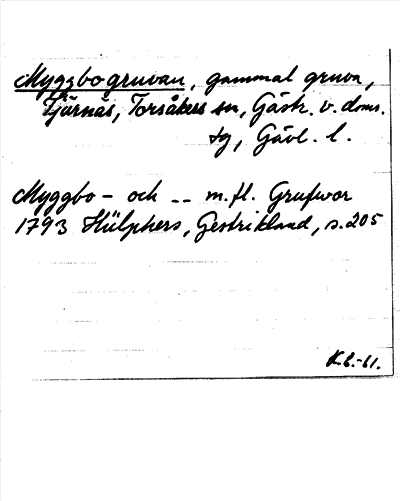 Myggbogruvan, gammal gruva,
Tjärnäs, Torsåkers sn, Gästr. v. doms.
tg, Gävl. l.
Myggbo- och -- m.fl. Grufwor
1793 Hülphers, Gestrikland, s. 205
K.L.-61.